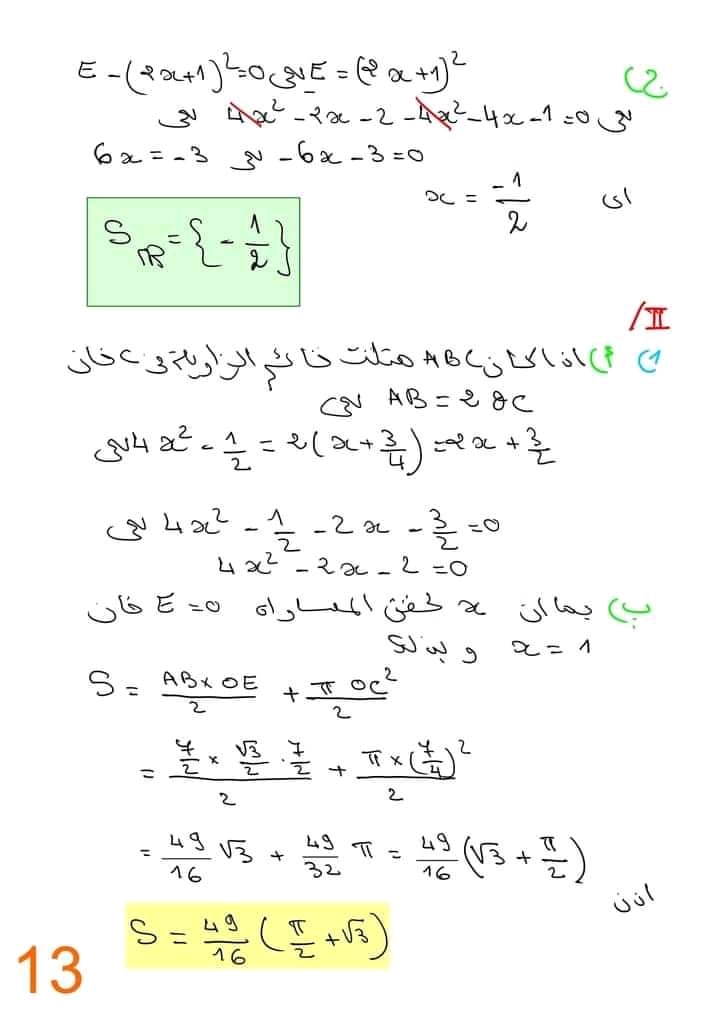 ج) E = (2x+1)² يعني E - (2x+1)² = 0
يعني 4x² - 2x - 2 - 4x² - 4x - 1 = 0 يعني
-6x - 3 = 0 يعني 6x = -3
اي x = -1/2
S_IR = {-1/2}
II/
1) أ) اذا كان ABC مثلث قائم الزاوية في C فان
AB = 2 OC يعني
4x² - 1/2 = 2(x + 3/4) = 2x + 3/2 يعني
4x² - 1/2 - 2x - 3/2 = 0 يعني
4x² - 2x - 2 = 0
ب) بما ان x تحقق المعادلة E = 0 فان
x = 1 و
S = (AB × OE)/2 + (π OC²)/2
= (7/2 × √3/2 · 7/2)/2 + (π × (7/4)²)/2
= 49/16 √3 + 49/32 π = 49/16 (√3 + π/2)
اذن
S = 49/16 (π/2 + √3)
13